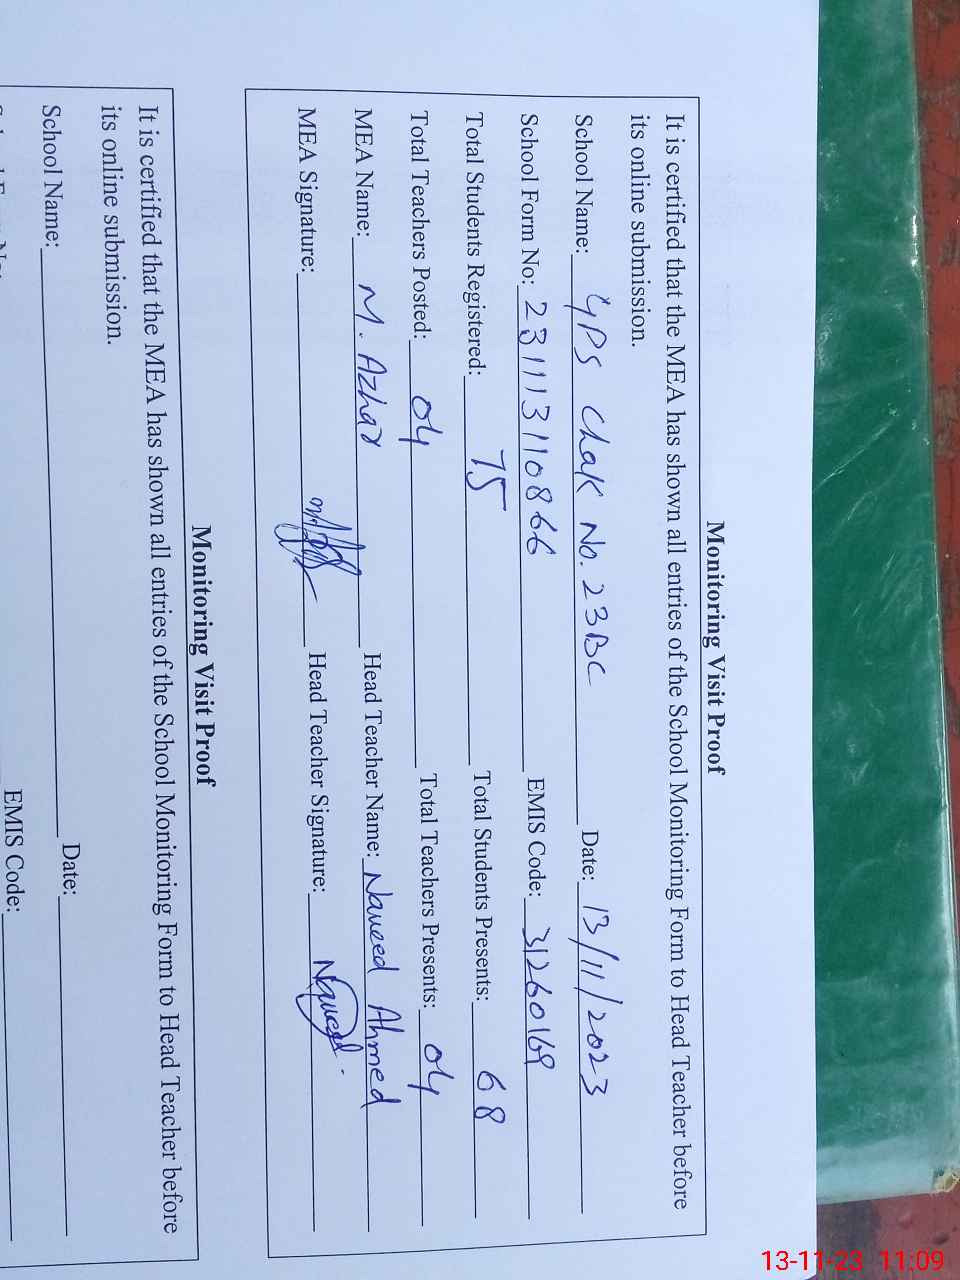 Monitoring Visit Proof
It is certified that the MEA has shown all entries of the School Monitoring Form to Head Teacher before
its online submission.
School Name: GPS Chak No. 23BC Date: 13/11/2023
School Form No: 231113110866 EMIS Code: 31260169
Total Students Registered: 75 Total Students Presents: 68
Total Teachers Posted: 04 Total Teachers Presents: 04
MEA Name: M. Azhar Head Teacher Name: Naveed Ahmed
MEA Signature: Head Teacher Signature: Naveed.
Monitoring Visit Proof
It is certified that the MEA has shown all entries of the School Monitoring Form to Head Teacher before
its online submission.
School Name: Date:
EMIS Code:
13-11-23 11:09